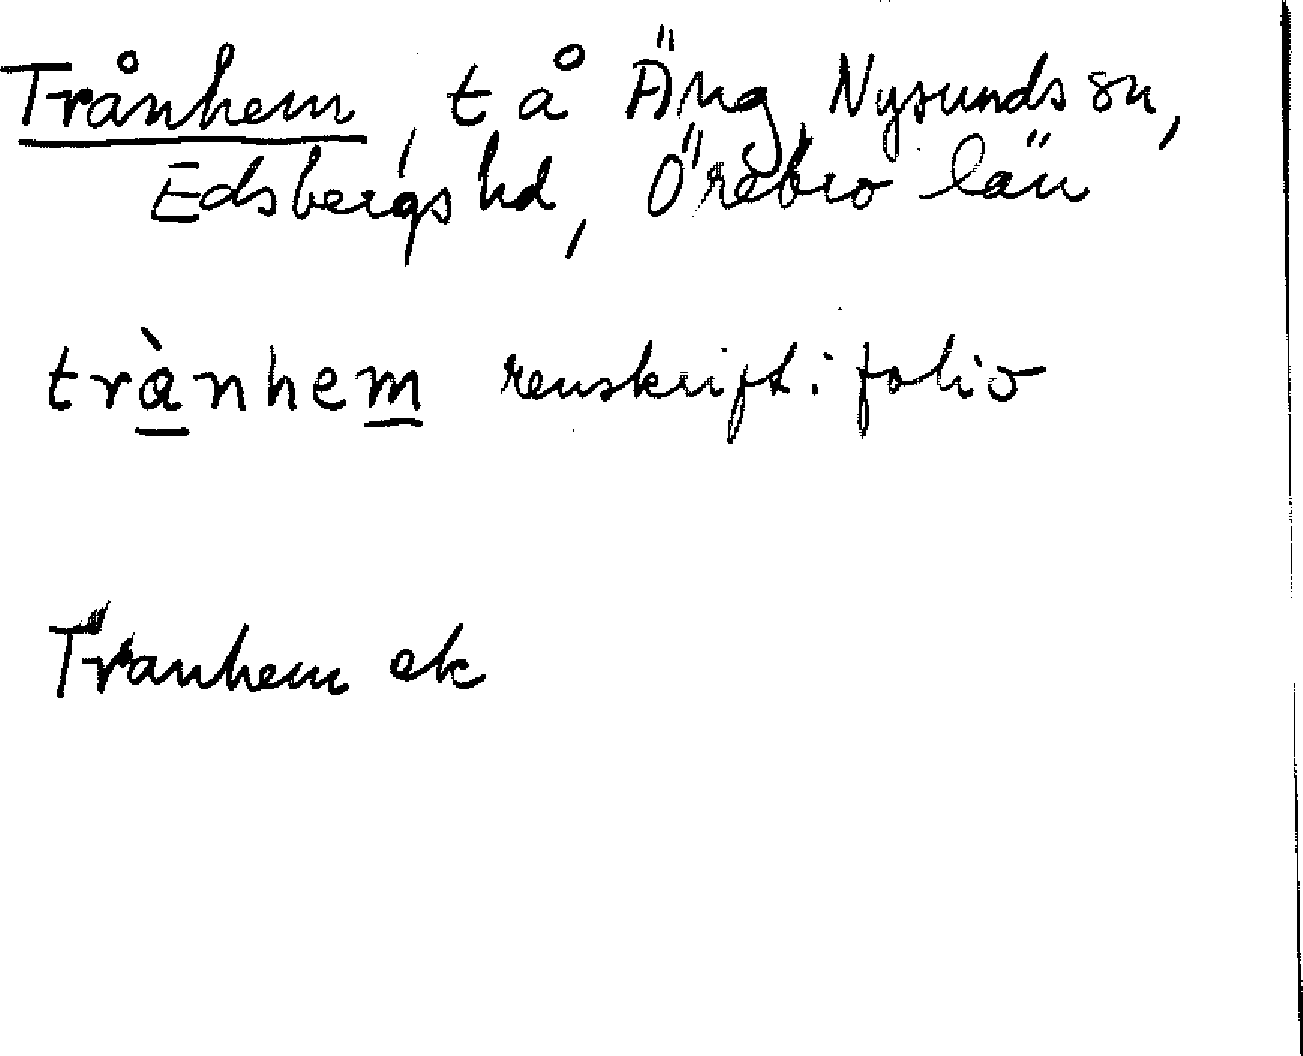 Trånhem, t å Äng, Nysunds sn,
Edsbergs hd, Örebro län
trànhem renskrift i folio
Tranhem ek